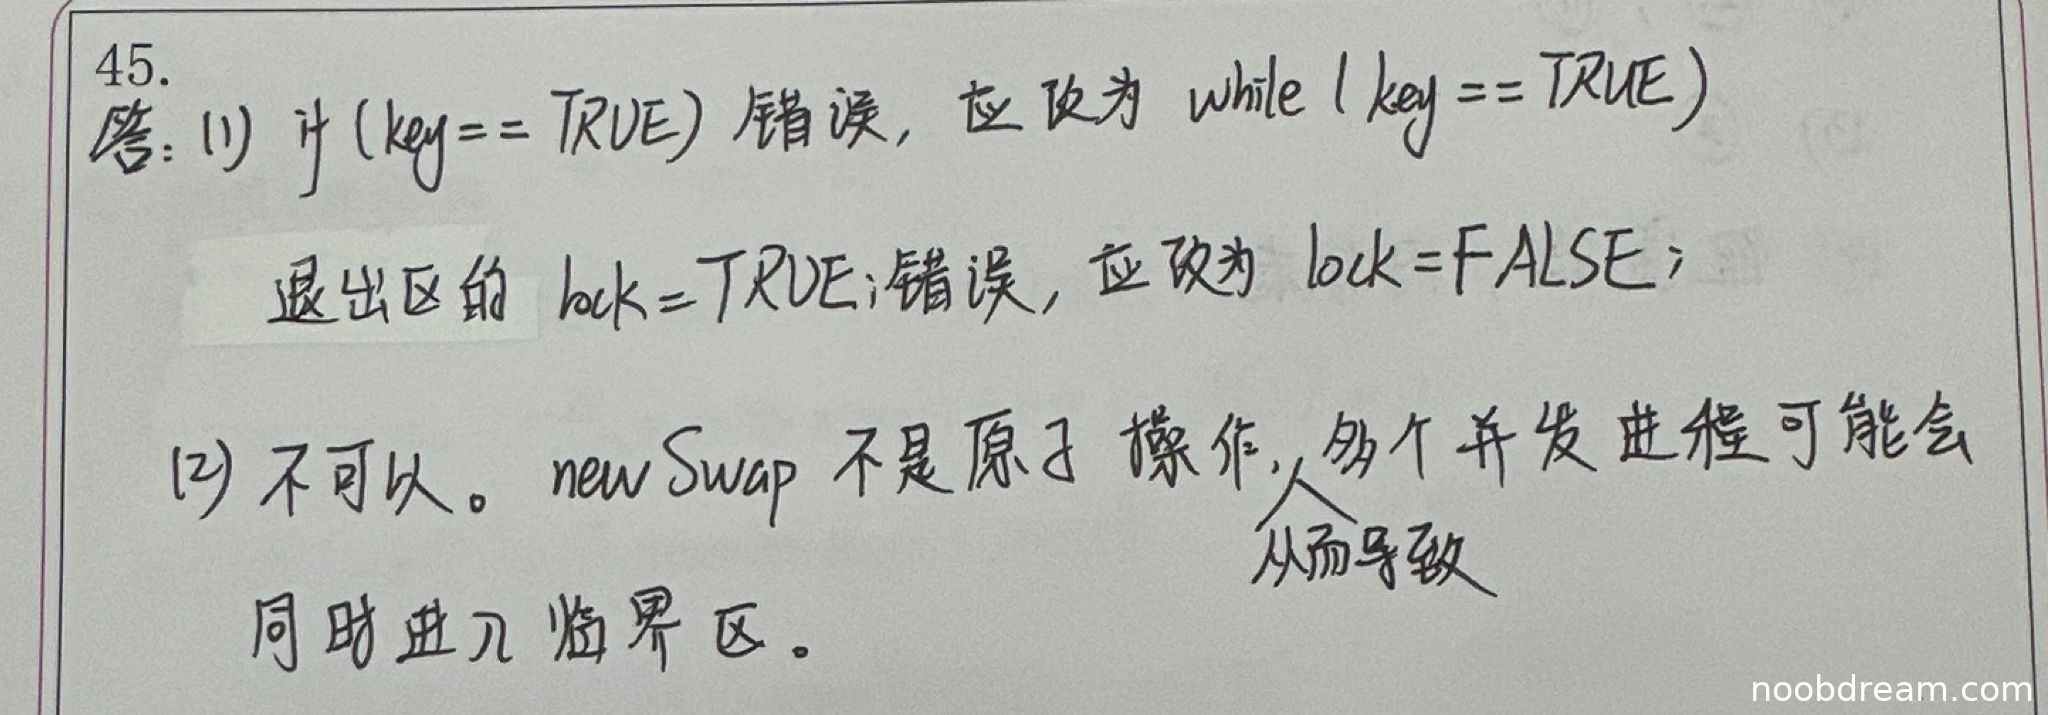 45.
答：(1) if (key == TRUE) 错误，应改为 while ( key == TRUE )
退出区的 lock = TRUE; 错误，应改为 lock = FALSE;
(2) 不可以。newSwap 不是原子操作，从而导致多个并发进程可能会
同时进入临界区。
noobdream.com